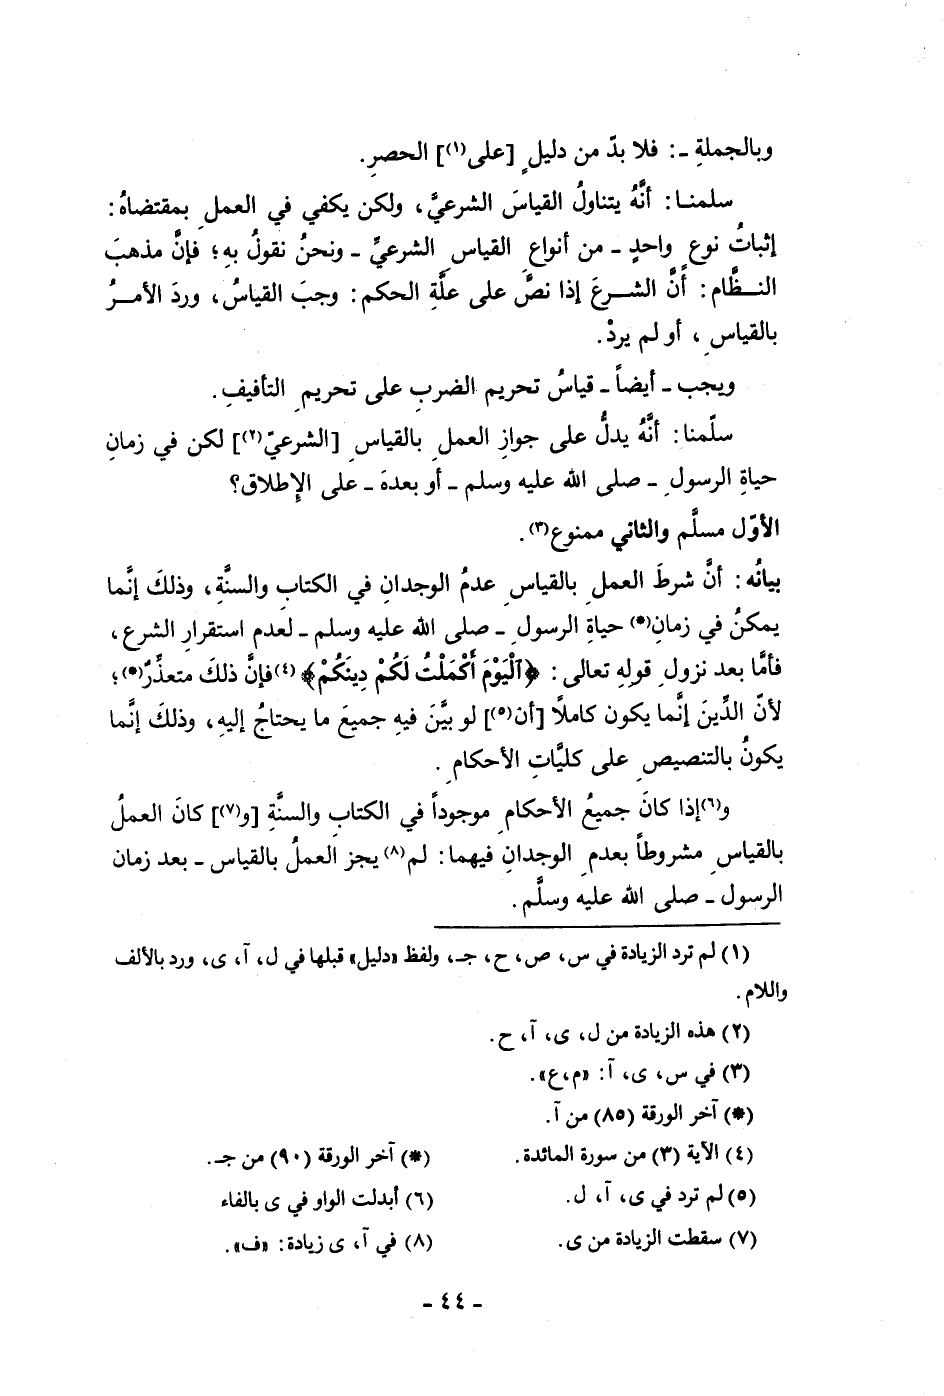 وبالجملةِ ـ: فلا بدّ من دليلٍ [على(١)] الحصرِ.
سلمنـا: أنَّهُ يتناولُ القياسَ الشرعيَّ، ولكن يكفي في العملِ بمقتضاهُ:
إثباتُ نوعٍ واحدٍ ـ من أنواعِ القياسِ الشرعيِّ ـ ونحنُ نقولُ بهِ؛ فإنَّ مذهبَ
النـظَّام: أنَّ الشـرعَ إذا نصَّ على علَّةِ الحكم: وجبَ القياسُ، وردَ الأمـرُ
بالقياسِ، أو لم يردْ.
ويجب ـ أيضاً ـ قياسُ تحريم الضربِ على تحريمِ التأفيفِ.
سلّمنا: أنَّهُ يدلُّ على جوازِ العملِ بالقياسِ [الشرعيّ(٢)] لكن في زمانِ
حياةِ الرسولِ ـ صلى الله عليه وسلم ـ أو بعدهَ ـ على الإطلاق؟
الأوّل مسلَّم والثاني ممنوع(٣).
بيانُه: أنَّ شرطَ العملِ بالقياسِ عدمُ الوجدانِ في الكتابِ والسنَّةِ، وذلكَ إنَّما
يمكنُ في زمانِ(*) حياةِ الرسولِ ـ صلى الله عليه وسلم ـ لعدم استقرارِ الشرع،
فأمَّا بعد نزولِ قولِهِ تعالى: ﴿ٱلْيَوْمَ أَكْمَلْتُ لَكُمْ دِينَكُمْ﴾(٤) فإنَّ ذلكَ متعذِّرٌ(*)؛
لأنّ الدِّينَ إنَّما يكون كاملًا [أن(٥)] لو بيَّنَ فيهِ جميعَ ما يحتاجُ إليهِ، وذلكَ إنَّما
يكونُ بالتنصيصِ على كليَّاتِ الأحكامِ.
و(٦)إذا كانَ جميعُ الأحكامِ موجوداً في الكتابِ والسنَّةِ [و(٧)] كانَ العملُ
بالقياسِ مشروطاً بعدمِ الوجدانِ فيهما: لم(٨) يجز العملُ بالقياسِ ـ بعد زمان
الرسول ـ صلى الله عليه وسلَّم.
(١) لم ترد الزيادة في س، ص، ح، جـ، ولفظ «دليل» قبلها في ل، آ، ى، ورد بالألف
واللام.
(٢) هذه الزيادة من ل، ى، آ، ح.
(٣) في س، ى، آ: «م،ع».
(*) آخر الورقة (٨٥) من آ.
(٤) الآية (٣) من سورة المائدة. (*) آخر الورقة (٩٠) من جـ.
(٥) لم ترد في ى، آ، ل. (٦) أبدلت الواو في ى بالفاء
(٧) سقطت الزيادة من ى. (٨) في آ، ى زيادة: «ف».
ـ ٤٤ ـ